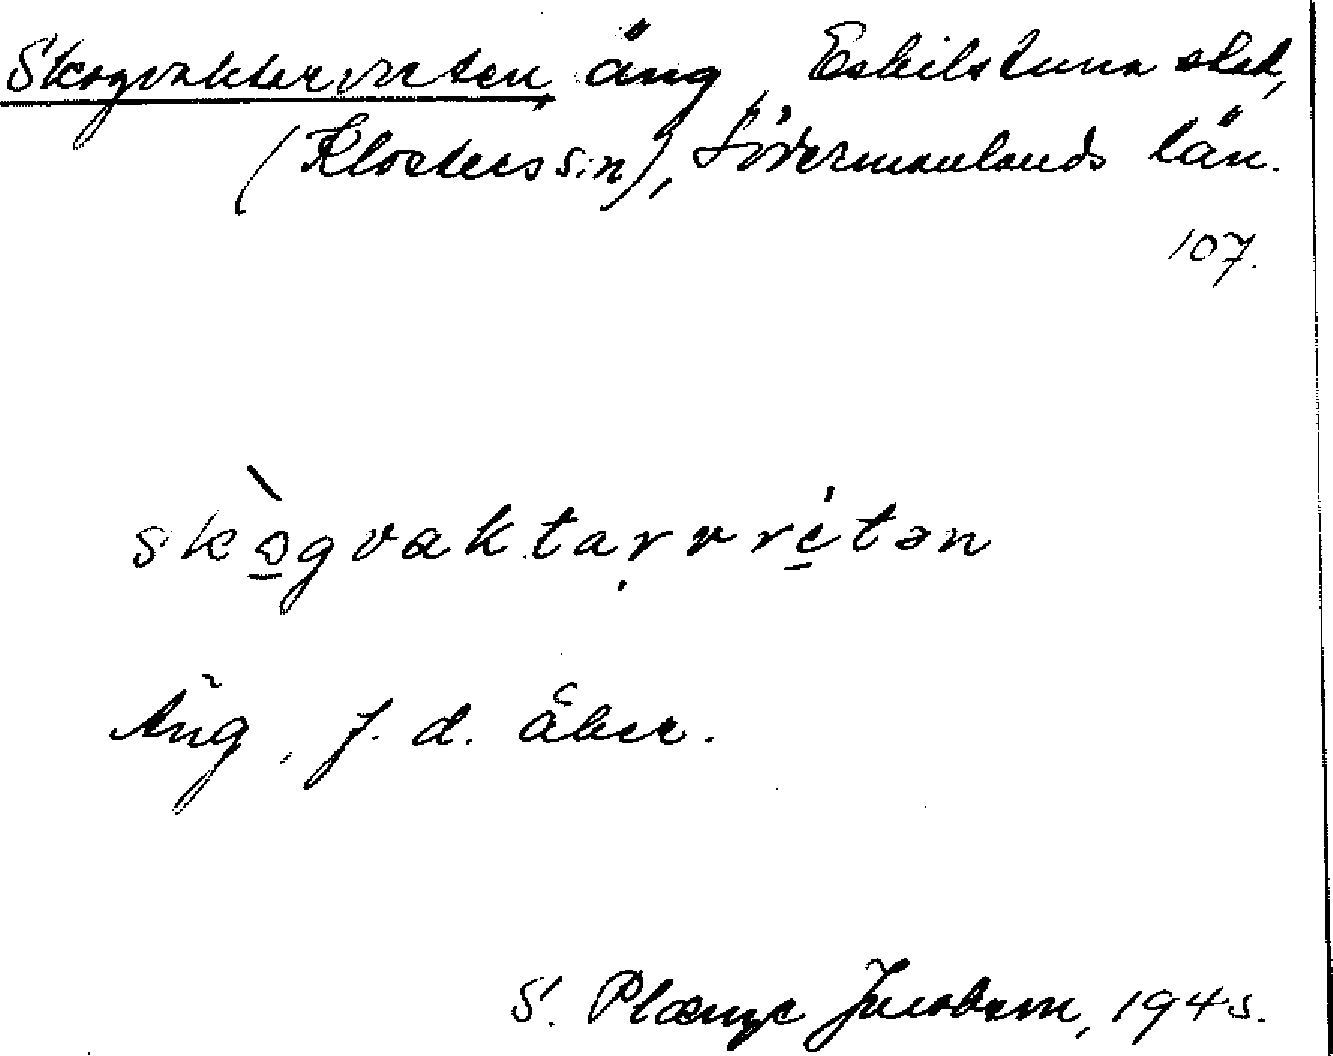 Skogvaktarvreten, äng, Eskilstuna stad,
(Klosters s:n), Södermanlands län.
107.
skògvaktaṛvrétən
Äng, f. d. åker.
S. Plænge Jacobson, 1945.